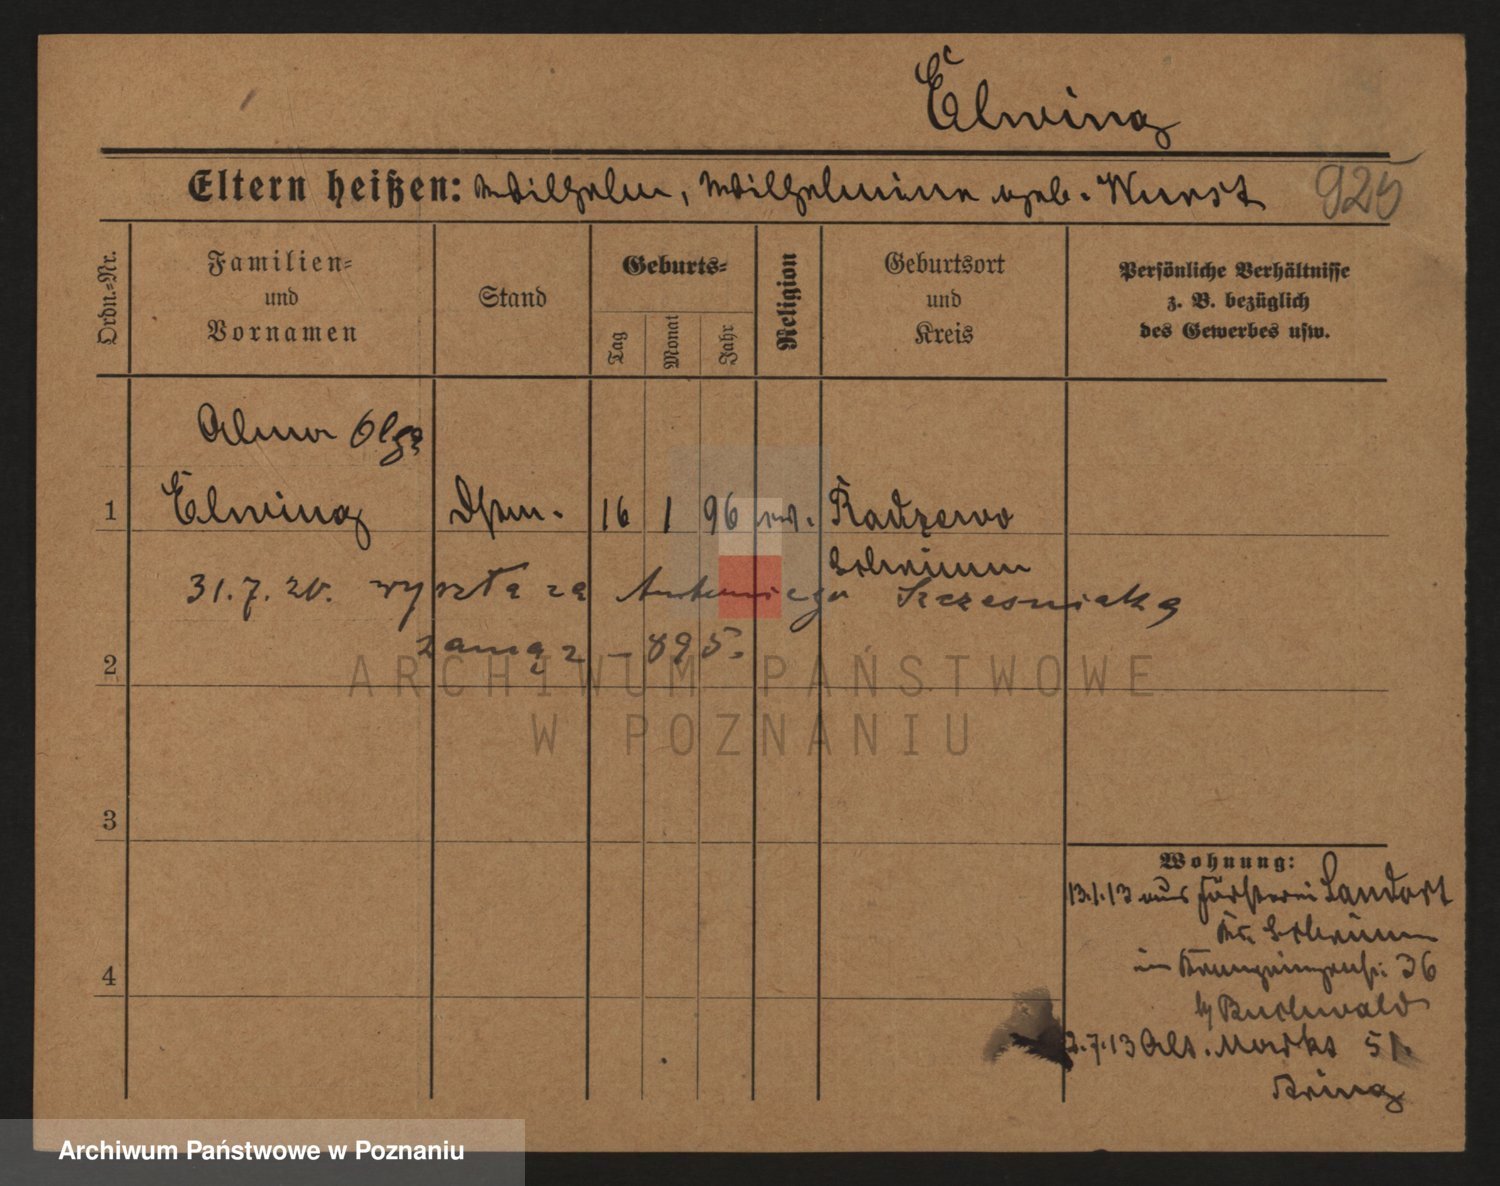 Elwing
Eltern heißen: Wilhelm, Wilhelmine geb. Wurst 925
Ordn.-Nr.
Familien-
und
Vornamen
Stand
Geburts-
Tag
Monat
Jahr
Religion
Geburtsort
und
Kreis
Persönliche Verhältnisse
z. B. bezüglich
des Gewerbes usw.
Alma Olga
1 Elwing 16 1 96 ev. Radzewo
Schrimm
31.7.20. wyszła za Antoniego Szczesniaka
zamąz – 895.
2
3
4
Wohnung:
13.1.13 aus Försterei Landort
Kr. Schrimm
in 36
b/ Buchwald
2.7.13 Alt. Markt 51.
Kring
ARCHIWUM PAŃSTWOWE
W POZNANIU
Archiwum Państwowe w Poznaniu